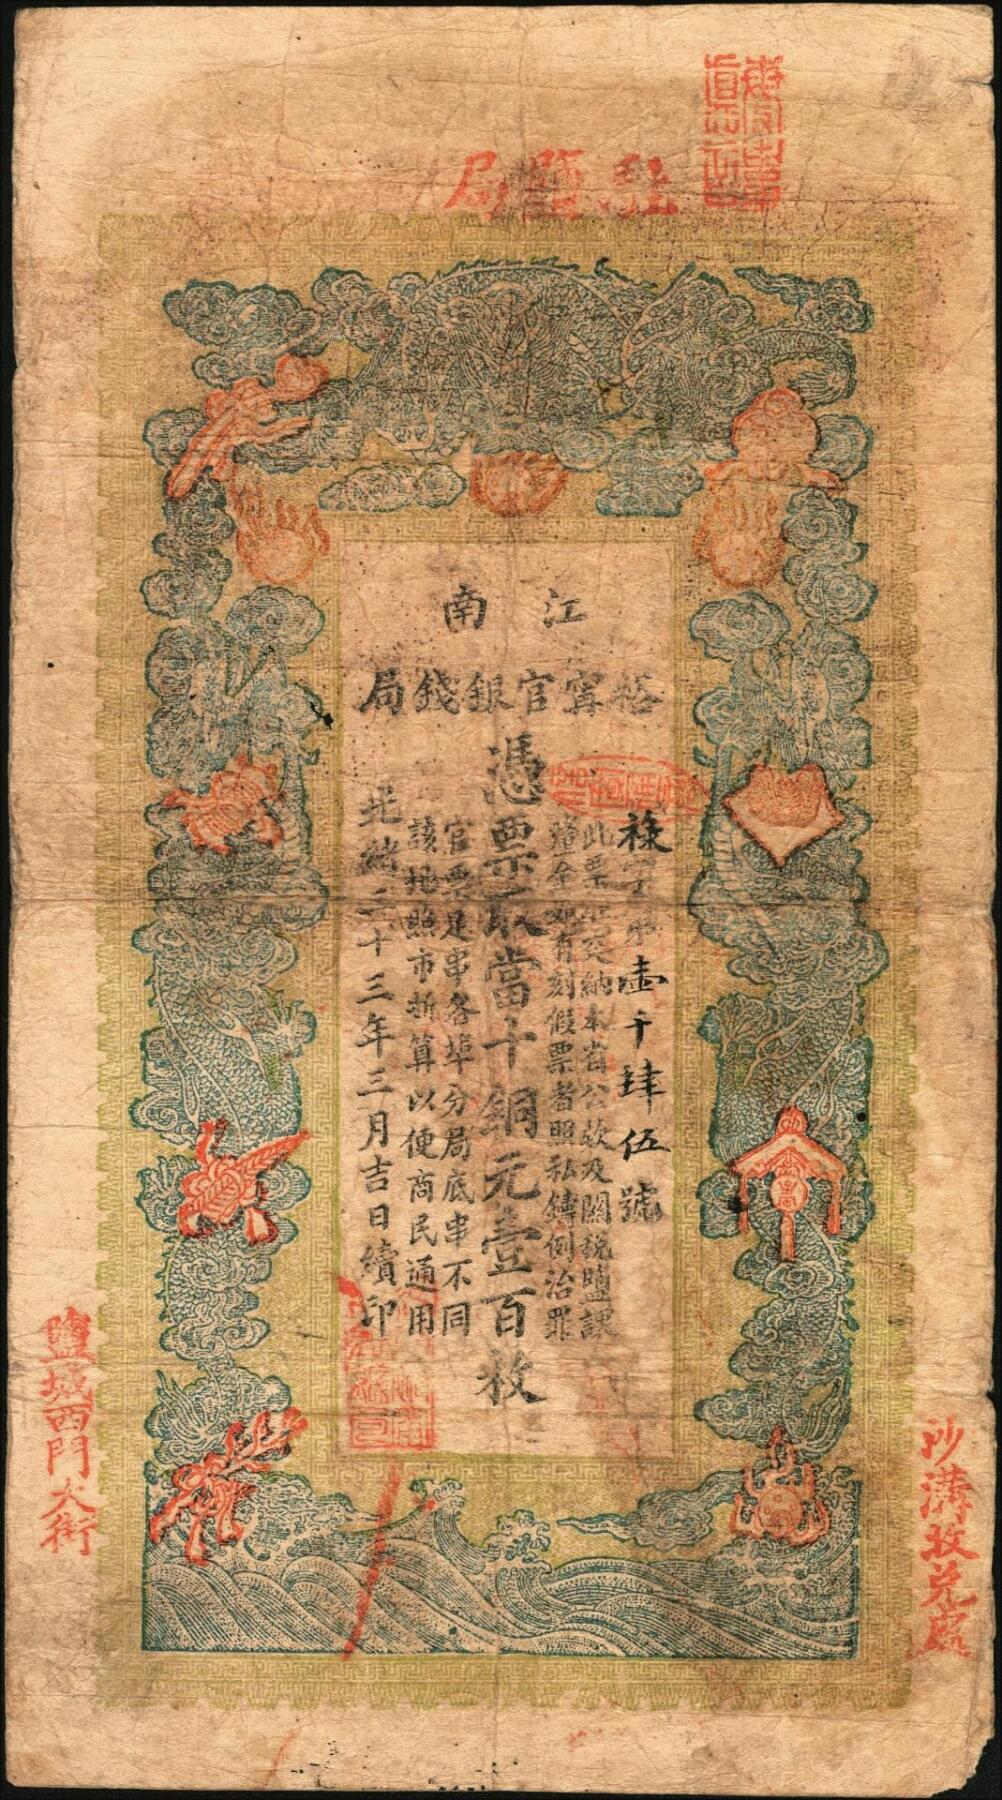 駐鹽局
江南
裕寧官銀錢局
祿字第壹千肆伍號
此票準完納本省公欵及關稅鹽課
釐金如有刻假票者照私鑄例治罪
憑票取當十銅元壹百枚
官票足串各埠分局底串不同
該地照市折算以便商民通用
光緒三十三年三月吉日續印
沙溝收兌處
鹽城西門大街